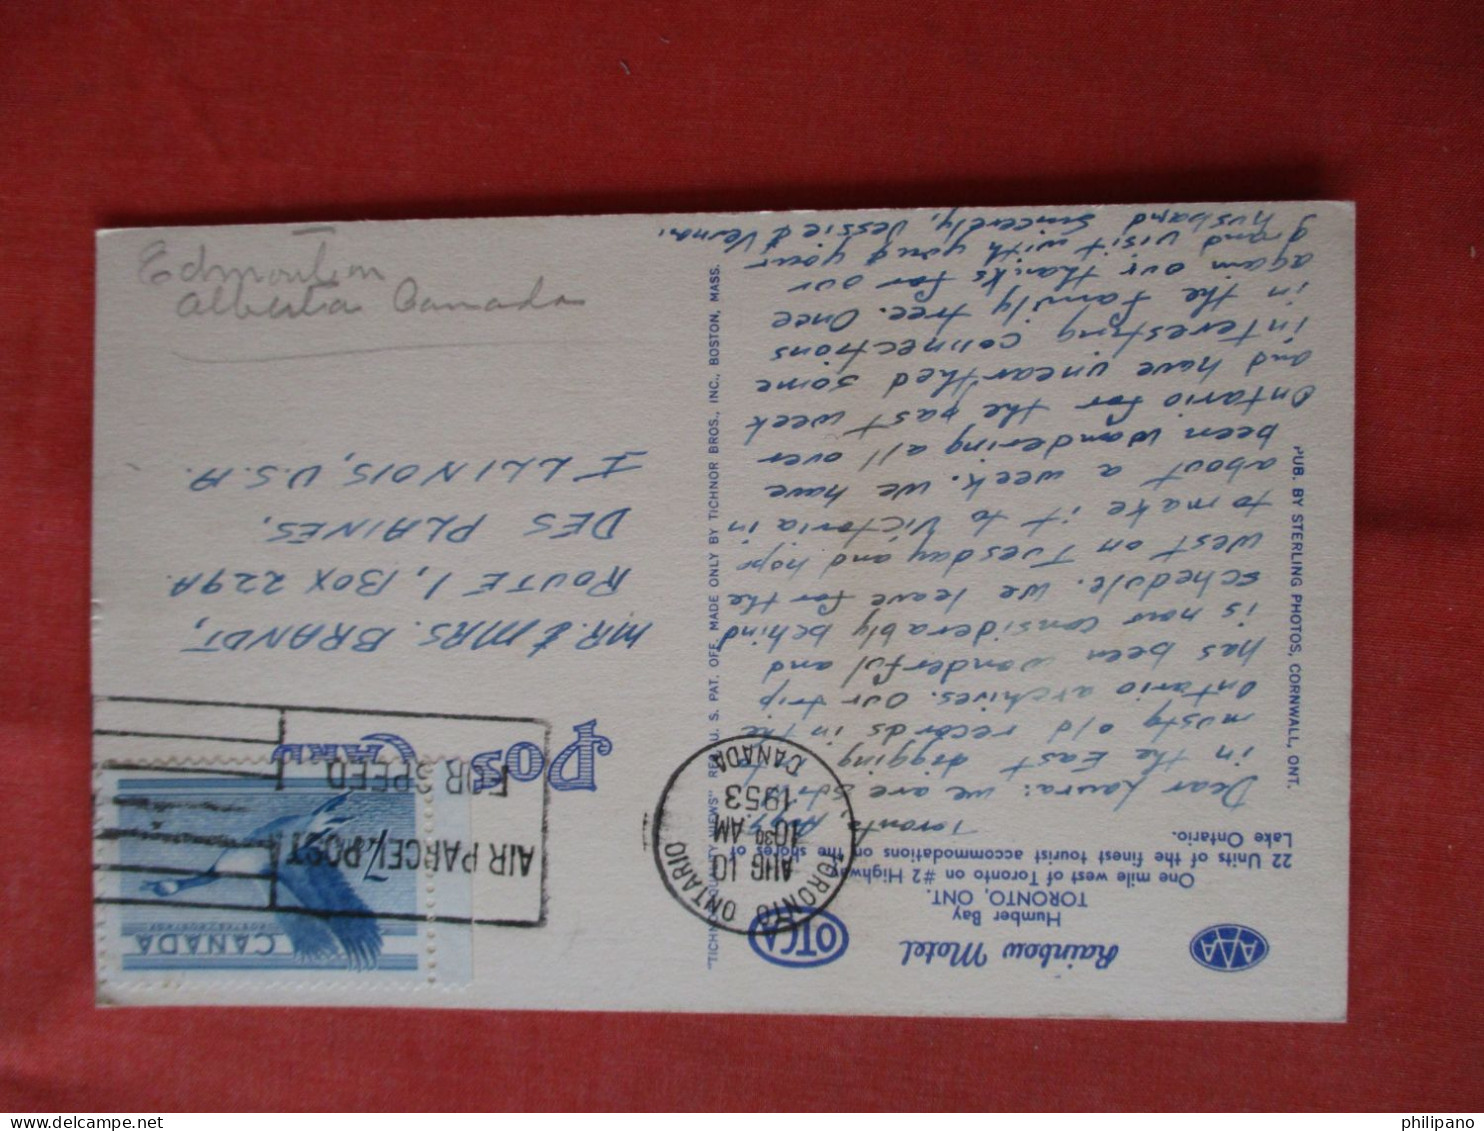 AAA
Rainbow Motel
OTCA
Humber Bay
TORONTO, ONT.
One mile west of Toronto on #2 Highway
22 Units of the finest tourist accommodations on the shores of
Lake Ontario.
Toronto, Aug 9
Dear Laura: We are still
in the East digging
musty old records in the
Ontario archives. Our trip
has been wonderful and
is now considerably behind
schedule. We leave for the
west on Tuesday and hope
to make it to Victoria in
about a week. We have
been wandering all over
Ontario for the past week
and have unearthed some
interesting connections
in the family tree. Once
again our thanks for our
grand visit with you & your
husband Sincerely, Jessie & Verna.
PUB. BY STERLING PHOTOS, CORNWALL, ONT.
"TICHNOR QUALITY VIEWS" REG. U. S. PAT. OFF. MADE ONLY BY TICHNOR BROS., INC., BOSTON, MASS.
TORONTO ONTARIO
AUG 10
10 30 AM
1953
CANADA
AIR PARCEL POST
FOR SPEED
CANADA
POSTES POSTAGE
7¢
Post
Card
MR. & MRS. BRANDT,
ROUTE 1, BOX 229A
DES PLAINES,
ILLINOIS, U.S.A.
Edmonton
Alberta Canada
philipano